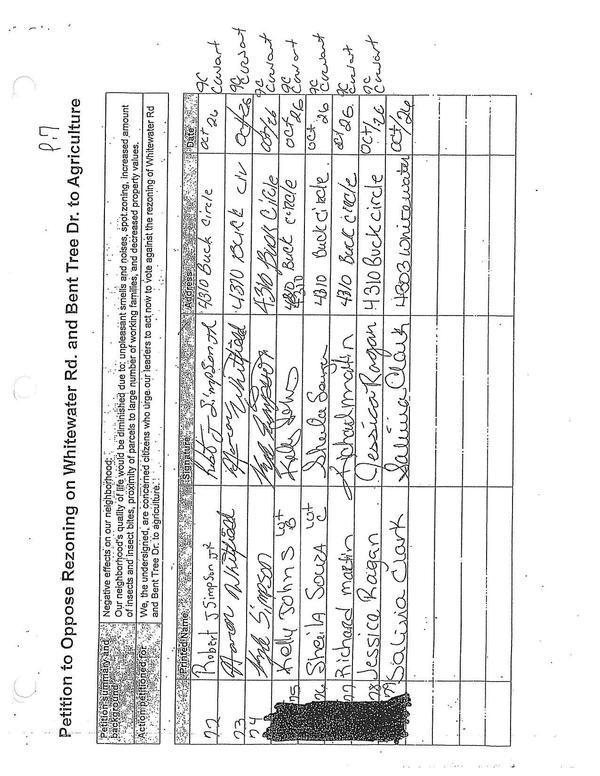 P. 17
Petition to Oppose Rezoning on Whitewater Rd. and Bent Tree Dr. to Agriculture
Petition summary and background
Negative effects on our neighborhood:
Our neighborhood's quality of life would be diminished due to: unpleasant smells and noises, spot zoning, increased amount
of insects and insect bites, proximity of parcels to large number of working families, and decreased property values.
Action petitioned for
We, the undersigned, are concerned citizens who urge our leaders to act now to vote against the rezoning of Whitewater Rd
and Bent Tree Dr. to agriculture.
Printed Name Signature Address Date
72 Robert J Simpson Jr Robt J Simpson Jr 4310 Buck Circle oct 26
73 Aaron Whitfield Aaron Whitfield 4310 Buck Cir oct 26
74 Kyle Simpson Kyle Simpson 4310 Buck Circle oct/26
75 Kelly Johns Lot B Kelly Johns 4310 Buck circle oct 26
76 Sheila Sousa Lot C Sheila Sousa 4310 Buck circle oct 26
77 Richard martin Richard martin 4310 Buck circle oct 26
78 Jessica Ragan Jessica Ragan 4310 Buck circle oct/26
79 Salivia Clark Salivia Clark 4803 Whitewater oct/26